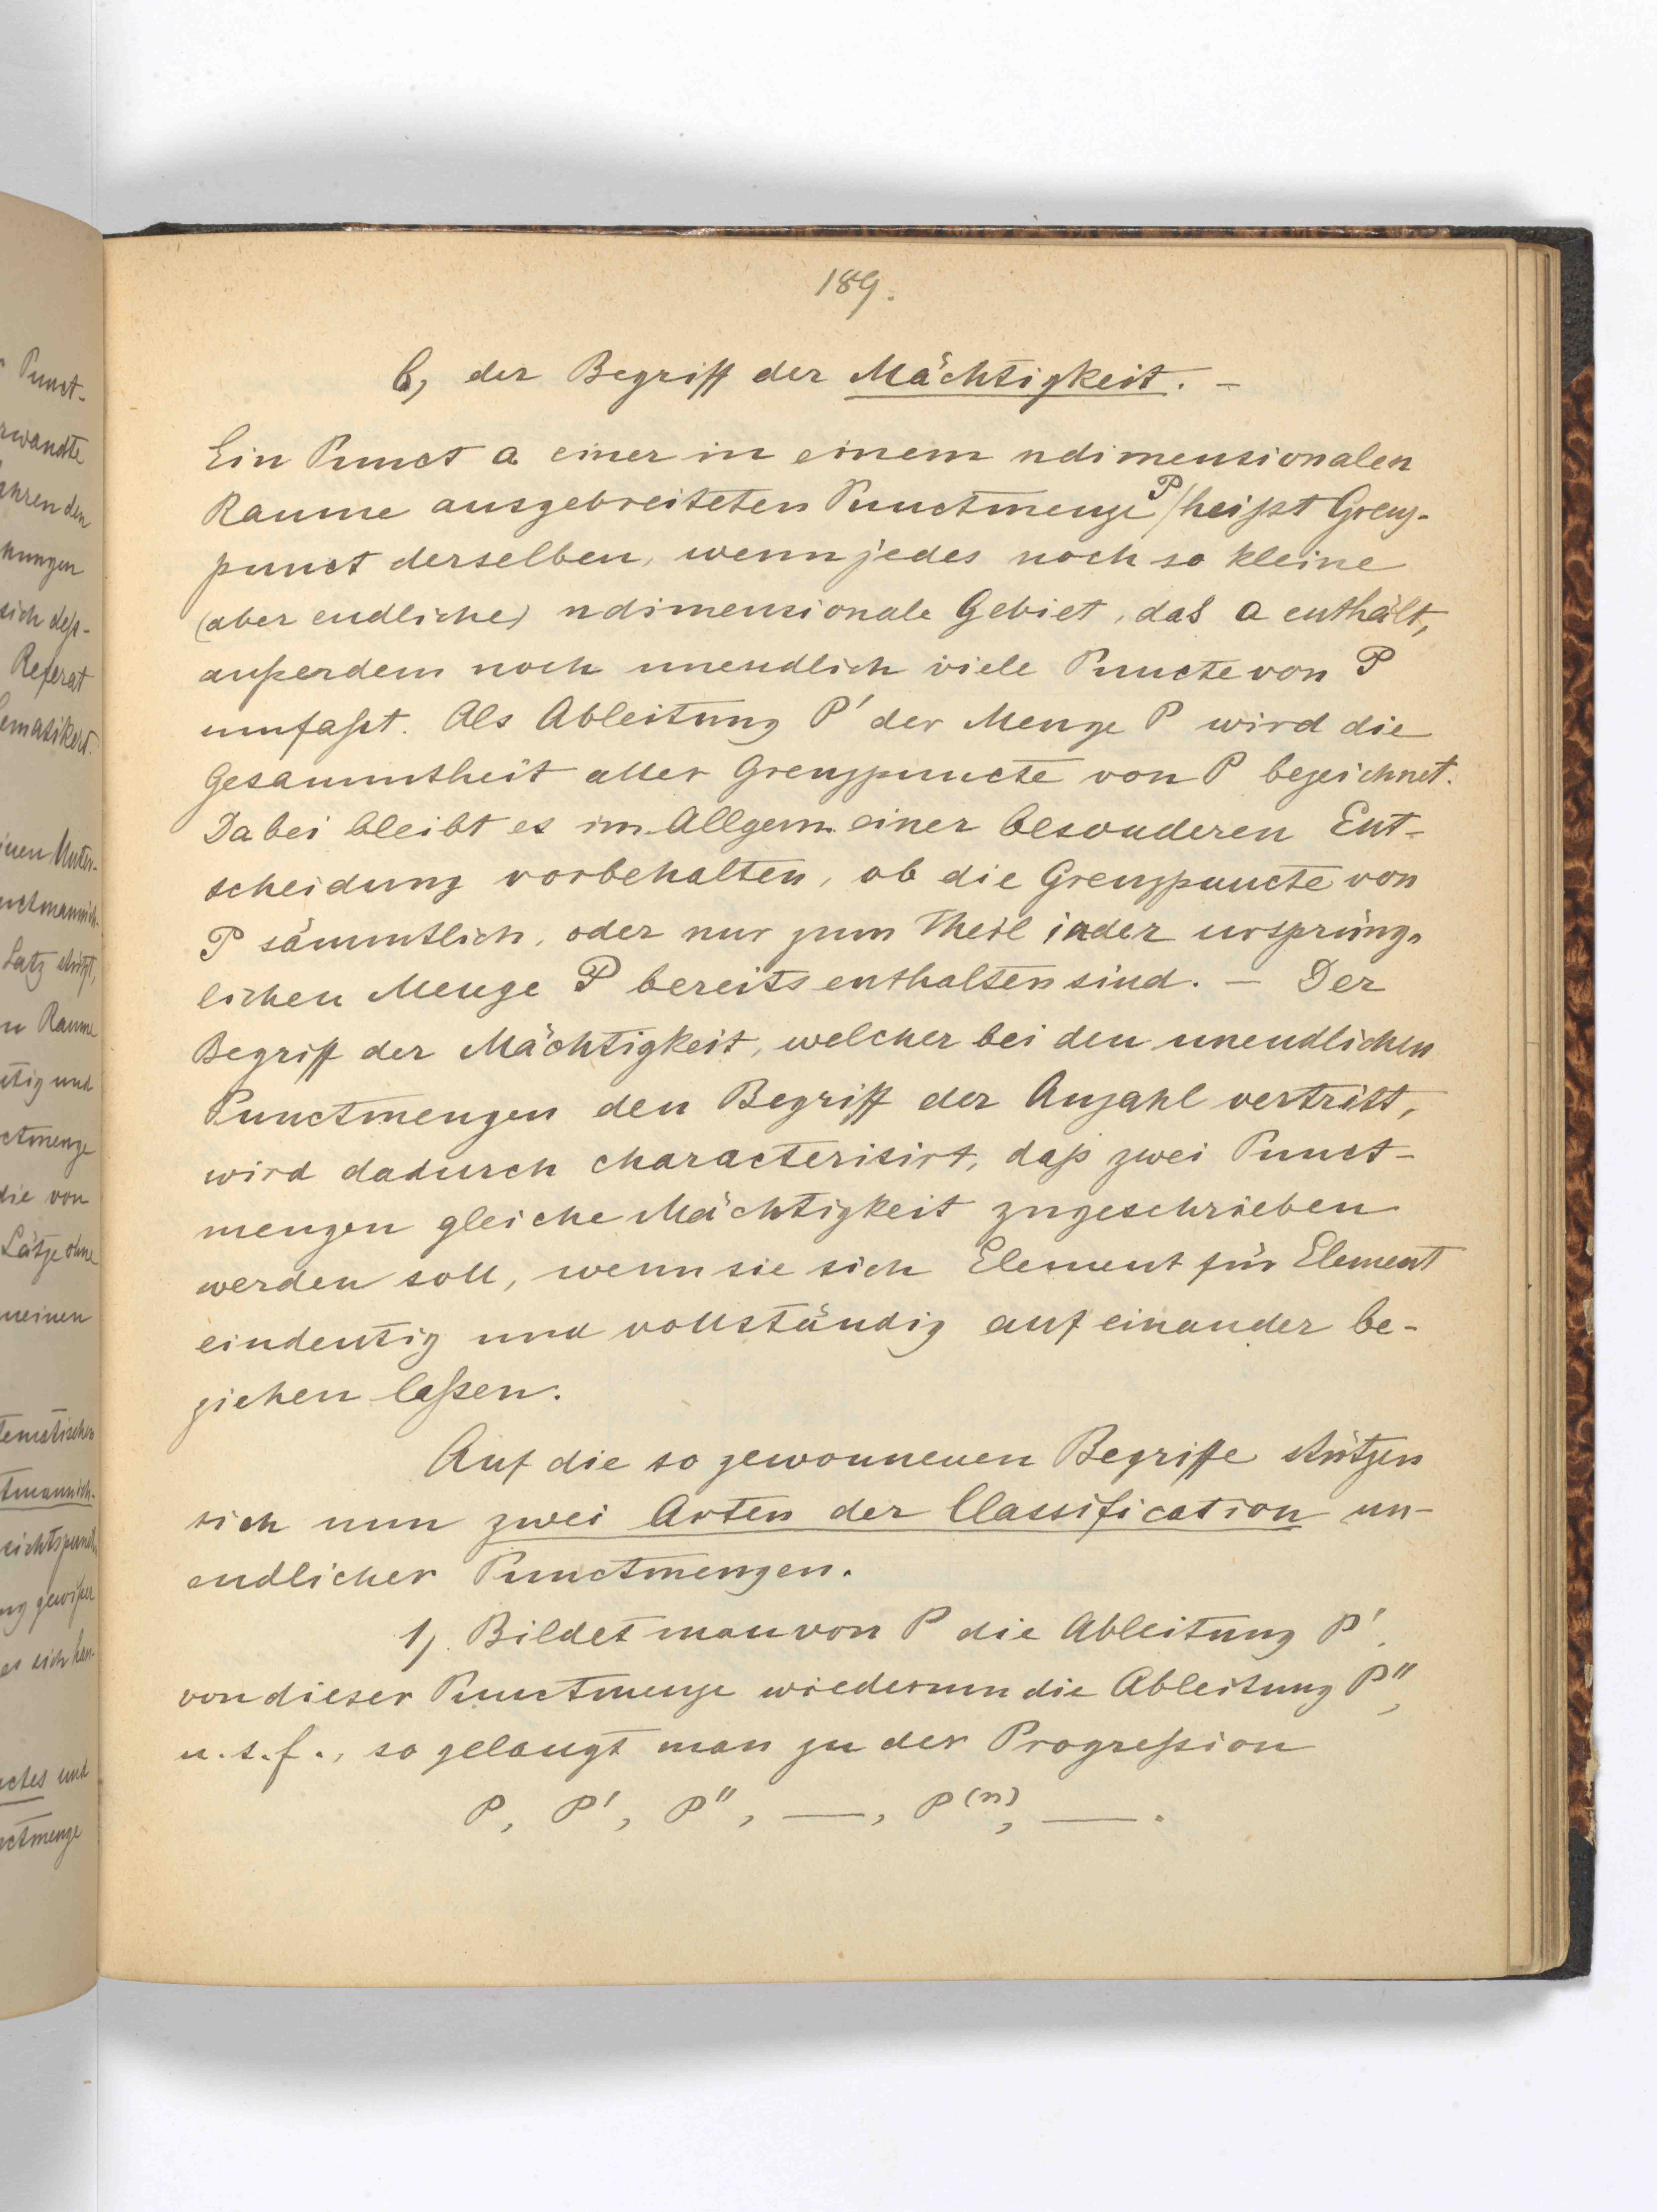 189.
b, der Begriff der Mächtigkeit. –
Ein Punct a einer in einem ndimensionalen
Raume ausgebreiteten Punctmenge P heißt Grenz-
punct derselben, wenn jedes noch so kleine
(aber endliche) ndimensionale Gebiet, das a enthält,
außerdem noch unendlich viele Puncte von P
umfaßt. Als Ableitung P' der Menge P wird die
Gesammtheit aller Grenzpuncte von P bezeichnet.
Dabei bleibt es im Allgem. einer besonderen Ent-
scheidung vorbehalten, ob die Grenzpuncte von
P sämmtlich, oder nur zum Theil in der ursprüng-
lichen Menge P bereits enthalten sind. – Der
Begriff der Mächtigkeit, welcher bei den unendlichen
Punctmengen den Begriff der Anzahl vertritt,
wird dadurch characterisirt, daß zwei Punct-
mengen gleiche Mächtigkeit zugeschrieben
werden soll, wenn sie sich Element für Element
eindeutig und vollständig auf einander be-
ziehen laßen.
Auf die so gewonnenen Begriffe stützen
sich nun zwei Arten der Classification un-
endlicher Punctmengen.
1, Bildet man von P die Ableitung P',
von dieser Punctmenge wiederum die Ableitung P'',
u.s.f., so gelangt man zu der Progreßion
P, P', P'', —, P(n), —.
Punct-
wandte
den
nungen
sich
Referat
Raume
und
ctmenge
die von
Sätze ohne
meinen
und
ctmenge